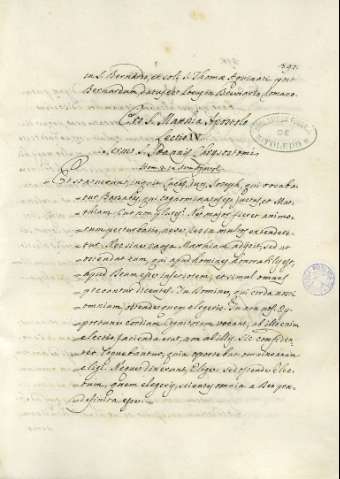 in S. Bernardo, et soli S. Thomæ Aquinati, post
Bernardum datus est locus in Breviario Romano.
S. Mathia Apostolo
Lectio IV.
Sermo S. Joannis Chrysostomi
inquit Joseph, qui vocaba
tur Barsabas, qui cognominatus est Justus, et Mat
thiam. Cur non plures? Ne major fieret animo
rum
tur. Nec sine causa Mathiam adjecit, sed ut
ostendat eum, qui apud homines honorabilis est,
apud Deum esse inferiorem; et simul omnes
precantur dicentes: Tu Domine, qui corda nosti
omnium, ostende quem elegeris. Tu non nos. Op
portune cordium Cognitorem vocant, ab illo enim
electio facienda erat, non ab illis. Sic confiden
ter loquebantur, quia oportebat omnino unum
eligi. Neque dixerunt, Elige: sed ostende Elec
tum, quem elegeris, scientes omnia a Deo præ
definita esse.
DE
TOLEDO